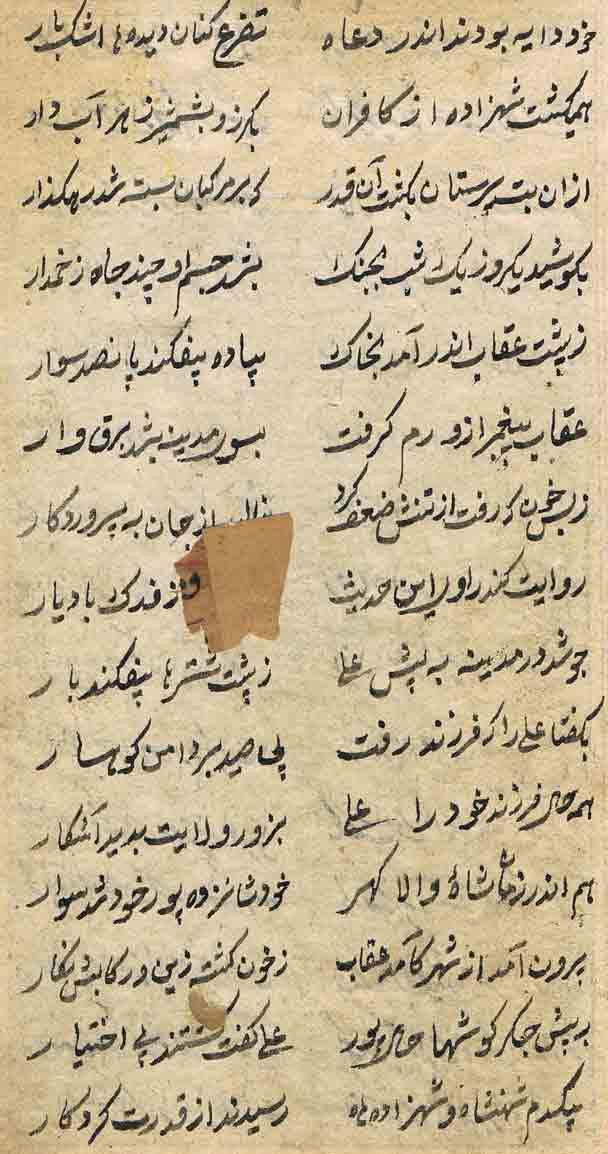 خرد دایه بودند اندر دعاه تضرع کنان دیده ها اشکبار
همیکشت شهزاده از کافران بکرز و بشمشیر زهر آب دار
ازان بت پرستان بکشت آن قدر که بر مرکبان بسته شد رهکذار
بکوشید یکروز یک شب بجنک بشد جسم او چند جاه زخمدار
ز پشت عقاب اندر آمد بخاک پیاده بیفکند پانصد سوار
عقاب پیغمبر ازو رم کرفت بسوی مدینه بشد برق وار
ز بس خون که رفت از تنش ضعف کرد از جان به پروردکار
روایت کند راوی این حدیث فدک بادیار
چو شد در مدینه به پیش علی ز پشت شترها بیفکند بار
بکفتا علی را که فرزند رفت پی صید بر دامن کوهسار
همه حال فرزند خود را علی بزور ولایت بدید آشکار
هم اندر زمان شاه والا کهر خود شانزده پور خود شد سوار
برون آمد از شهر کامد عقاب ز خون کشته زین و رکابش نکار
به پیش جکرکوشها حال پور علی کفت کشتند بی اختیار
بیکدم شهنشاه و شهزاده ه رسیدند از قدرت کردکار